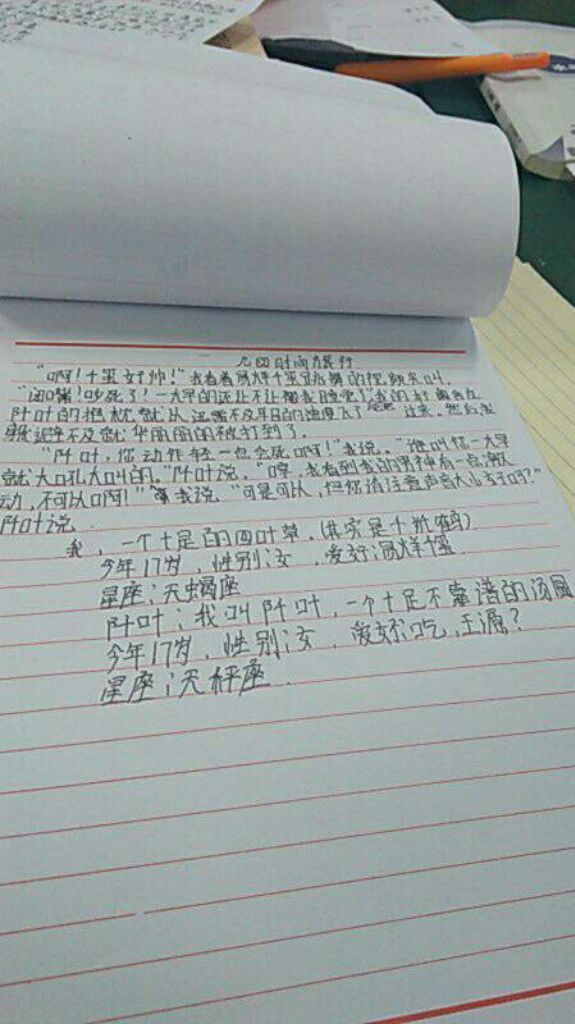 时间旅行
"啊!千玺好帅!"我看着易烊千玺跳舞的视频尖叫。
"闭嘴!吵死了!一大早的还让不让人睡觉了"我的好闺蜜
阡叶的抱枕就从迅雷不及耳的速度飞了过来,然后我
躲避不及就华丽丽的被打到了。
"阡叶,你动作轻一点会死啊!"我说。"谁叫你一大早
就大吼大叫的。"阡叶说,"哼,我看到我的男神有一点激
动,不可以啊!"我说"可是可以,但你请注意声音大小好吗?"
阡叶说
我,一个十足的四叶草。(其实是千纸鹤)
今年17岁,性别:女,爱好:易烊千玺
星座:天蝎座
阡叶:我叫阡叶,一个十足不靠谱的汤圆
今年17岁,性别:女,爱好:吃,王源?
星座:天秤座